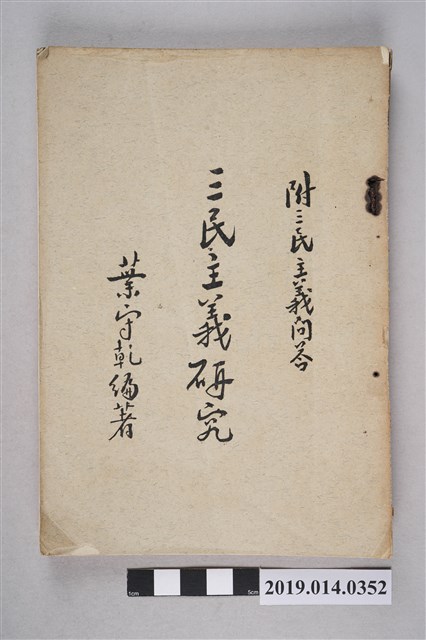 附三民主義問答
三民主義研究
葉守乾編著
1cm
5cm
2019.014.0352